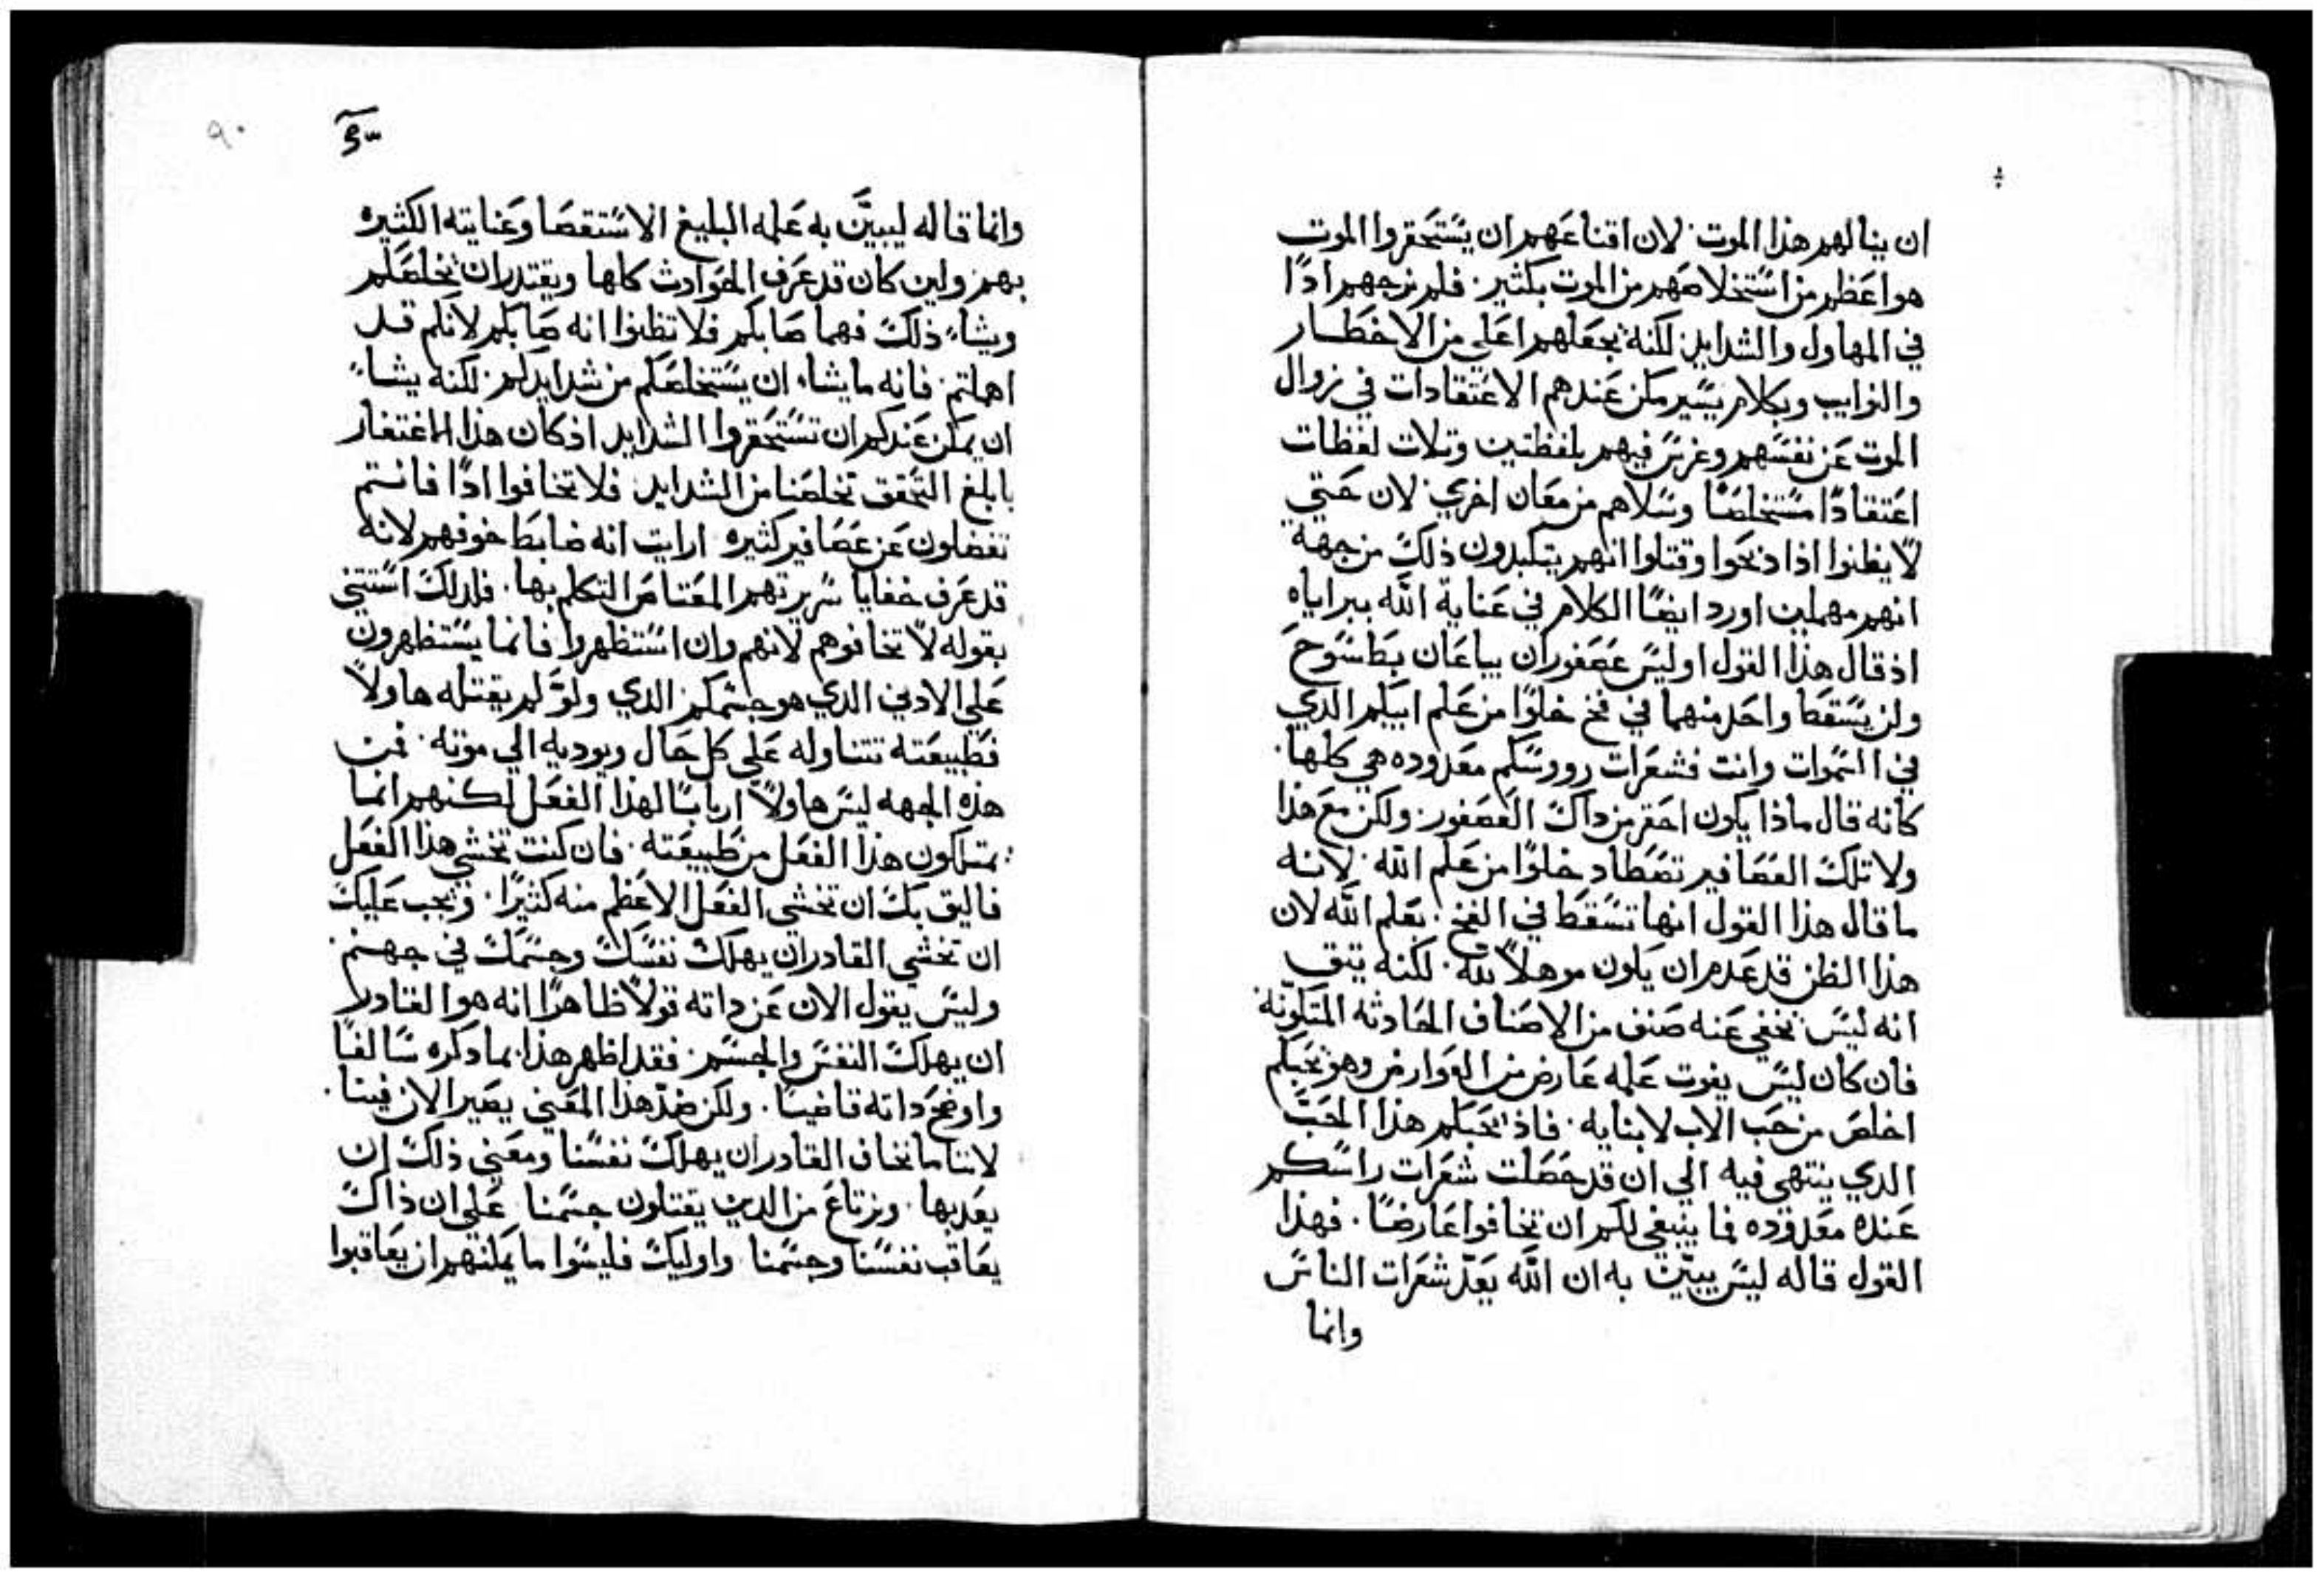 ان ينالهم هذا الموت. لان اقناعهم ان يستحقروا الموت
هو اعظم من استخلاصهم من الموت بكثير. فلم يزجهم اذًا
في المهاول والشدايد. لكنه يجعلهم اعلي من الاخطار
والنوايب وبكلام يسير مكن عندهم الاعتقادات في زوال
الموت عن نفسهم وغرس فيهم بلفظتين وتلات لفظات
اعتقادًا مستخلصًا وسلاهم من معان اخري. لان حتي
لا يظنوا اذا ذبحوا وقتلوا انهم يتكبدون ذلك من جهة
انهم مهملين اورد ايضًا الكلام في عناية الله ببراياه
اذ قال هذا القول اوليس عصفوران يباعان بطسوح
ولن يسقط واحد منهما في فخ خلوًا من علم ابيكم الدي
في السموات وانت فشعرات رووسكم معدوده هي كلها.
كانه قال ماذا يكون احقر من داك العصفور. ولكن مع هذا
ولا تلك العصافير تصطاد خلوًا من علم الله. لانه
ما قال هذا القول انها تسقط في الفخ. بعلم الله لان
هذا الظن قد عدم ان يكون موهلاً لله. لكنه يتق
انه ليس يخفي عنه صنف من الاصناف الحادثه المتكونه.
فان كان ليس يفوت علمه عارض من العوارض وهو يحبكم
اخلص من حب الاب لابنايه. فاذ يحبكم هذا الحب
الدي ينتهي فيه الي ان قد حصلت شعرات راسكم
عنده معدوده فما ينبغي لكم ان تخافوا عارضًا. فهذا
القول قاله ليس يبين به ان الله يعد شعرات الناس
وانما
٩٠
وانما قاله ليبين به علمه البليغ الاستقصا وعنايته الكثيره
بهم ولين كان قد عرف الحوادث كلها ويقتدر ان يخلصكم
ويشاء ذلك فهما صابكم فلا تظنوا انه صابكم لانكم قد
اهملتم. فانه ما يشاء ان يستخلصكم من شدايدكم. لكنه يشاء
ان يمكن عندكم ان تستحقروا الشدايد اذ كان هذا الاغتفار
بابلغ التحقق تخلصنا من الشدايد. فلا تخافوا اذًا فانتم
تفضلون عن عصافير كثيره. ارايت انه ضابط خوفهم لانه
قد عرف خفايا سريرتهم المعتاص التكلم بها. فلدلك استتني
بقوله لا تخافوهم لانهم وان استظهروا فانما يستظهرون
علي الادني الدي هو جسمكم. الدي ولو لم يقتله هاولاً
فطبيعته تتناوله علي كل حال ويوديه الي موته. فمن
هذه الجهه ليس هاولاً اربابًا لهذا الفعل لكنهم انما
يمتلكون هذا الفعل من طبيعته. فان كنت تخشي هذا الفعل
فاليق بك ان تخشي الفعل الاعظم منه كثيرًا. ويجب عليك
ان تخشي القادر ان يهلك نفسك وجسمك في جهنم.
وليس يقول الان عن داته قولاً ظاهرًا انه هو القادر
ان يهلك النفس والجسم. فقد اظهر هذا بما دكره سالفًا
واوضح داته قاضيًا. ولكن ضد هذا المعني يصير الان فينا.
لاننا ما نخاف القادر ان يهلك نفسنا ومعني ذلك ان
يعدبها. ونرتاع من الدين يقتلون جسمنا علي ان ذاك
يعاقب نفسنا وجسمنا واوليك فليسوا ما يمكنهم ان يعاقبوا